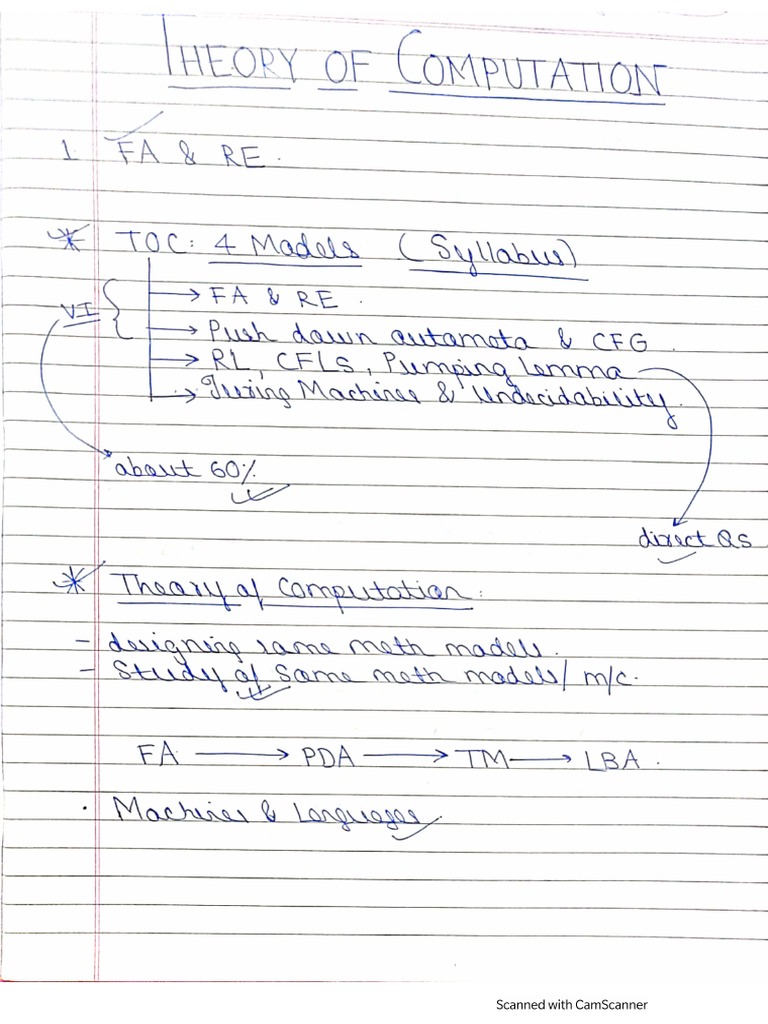 THEORY OF COMPUTATION
1 FA & RE.
* TOC: 4 Models (Syllabus)
→ FA & RE.
VI { → Push down automata & CFG.
→ RL, CFLS, Pumping Lemma
→ Turing Machines & Undecidability.
about 60%
direct Qs
* Theory of Computation:
- designing some math models.
- Study of Some math models/ m/c.
FA → PDA → TM → LBA.
. Machines & Languages
Scanned with CamScanner